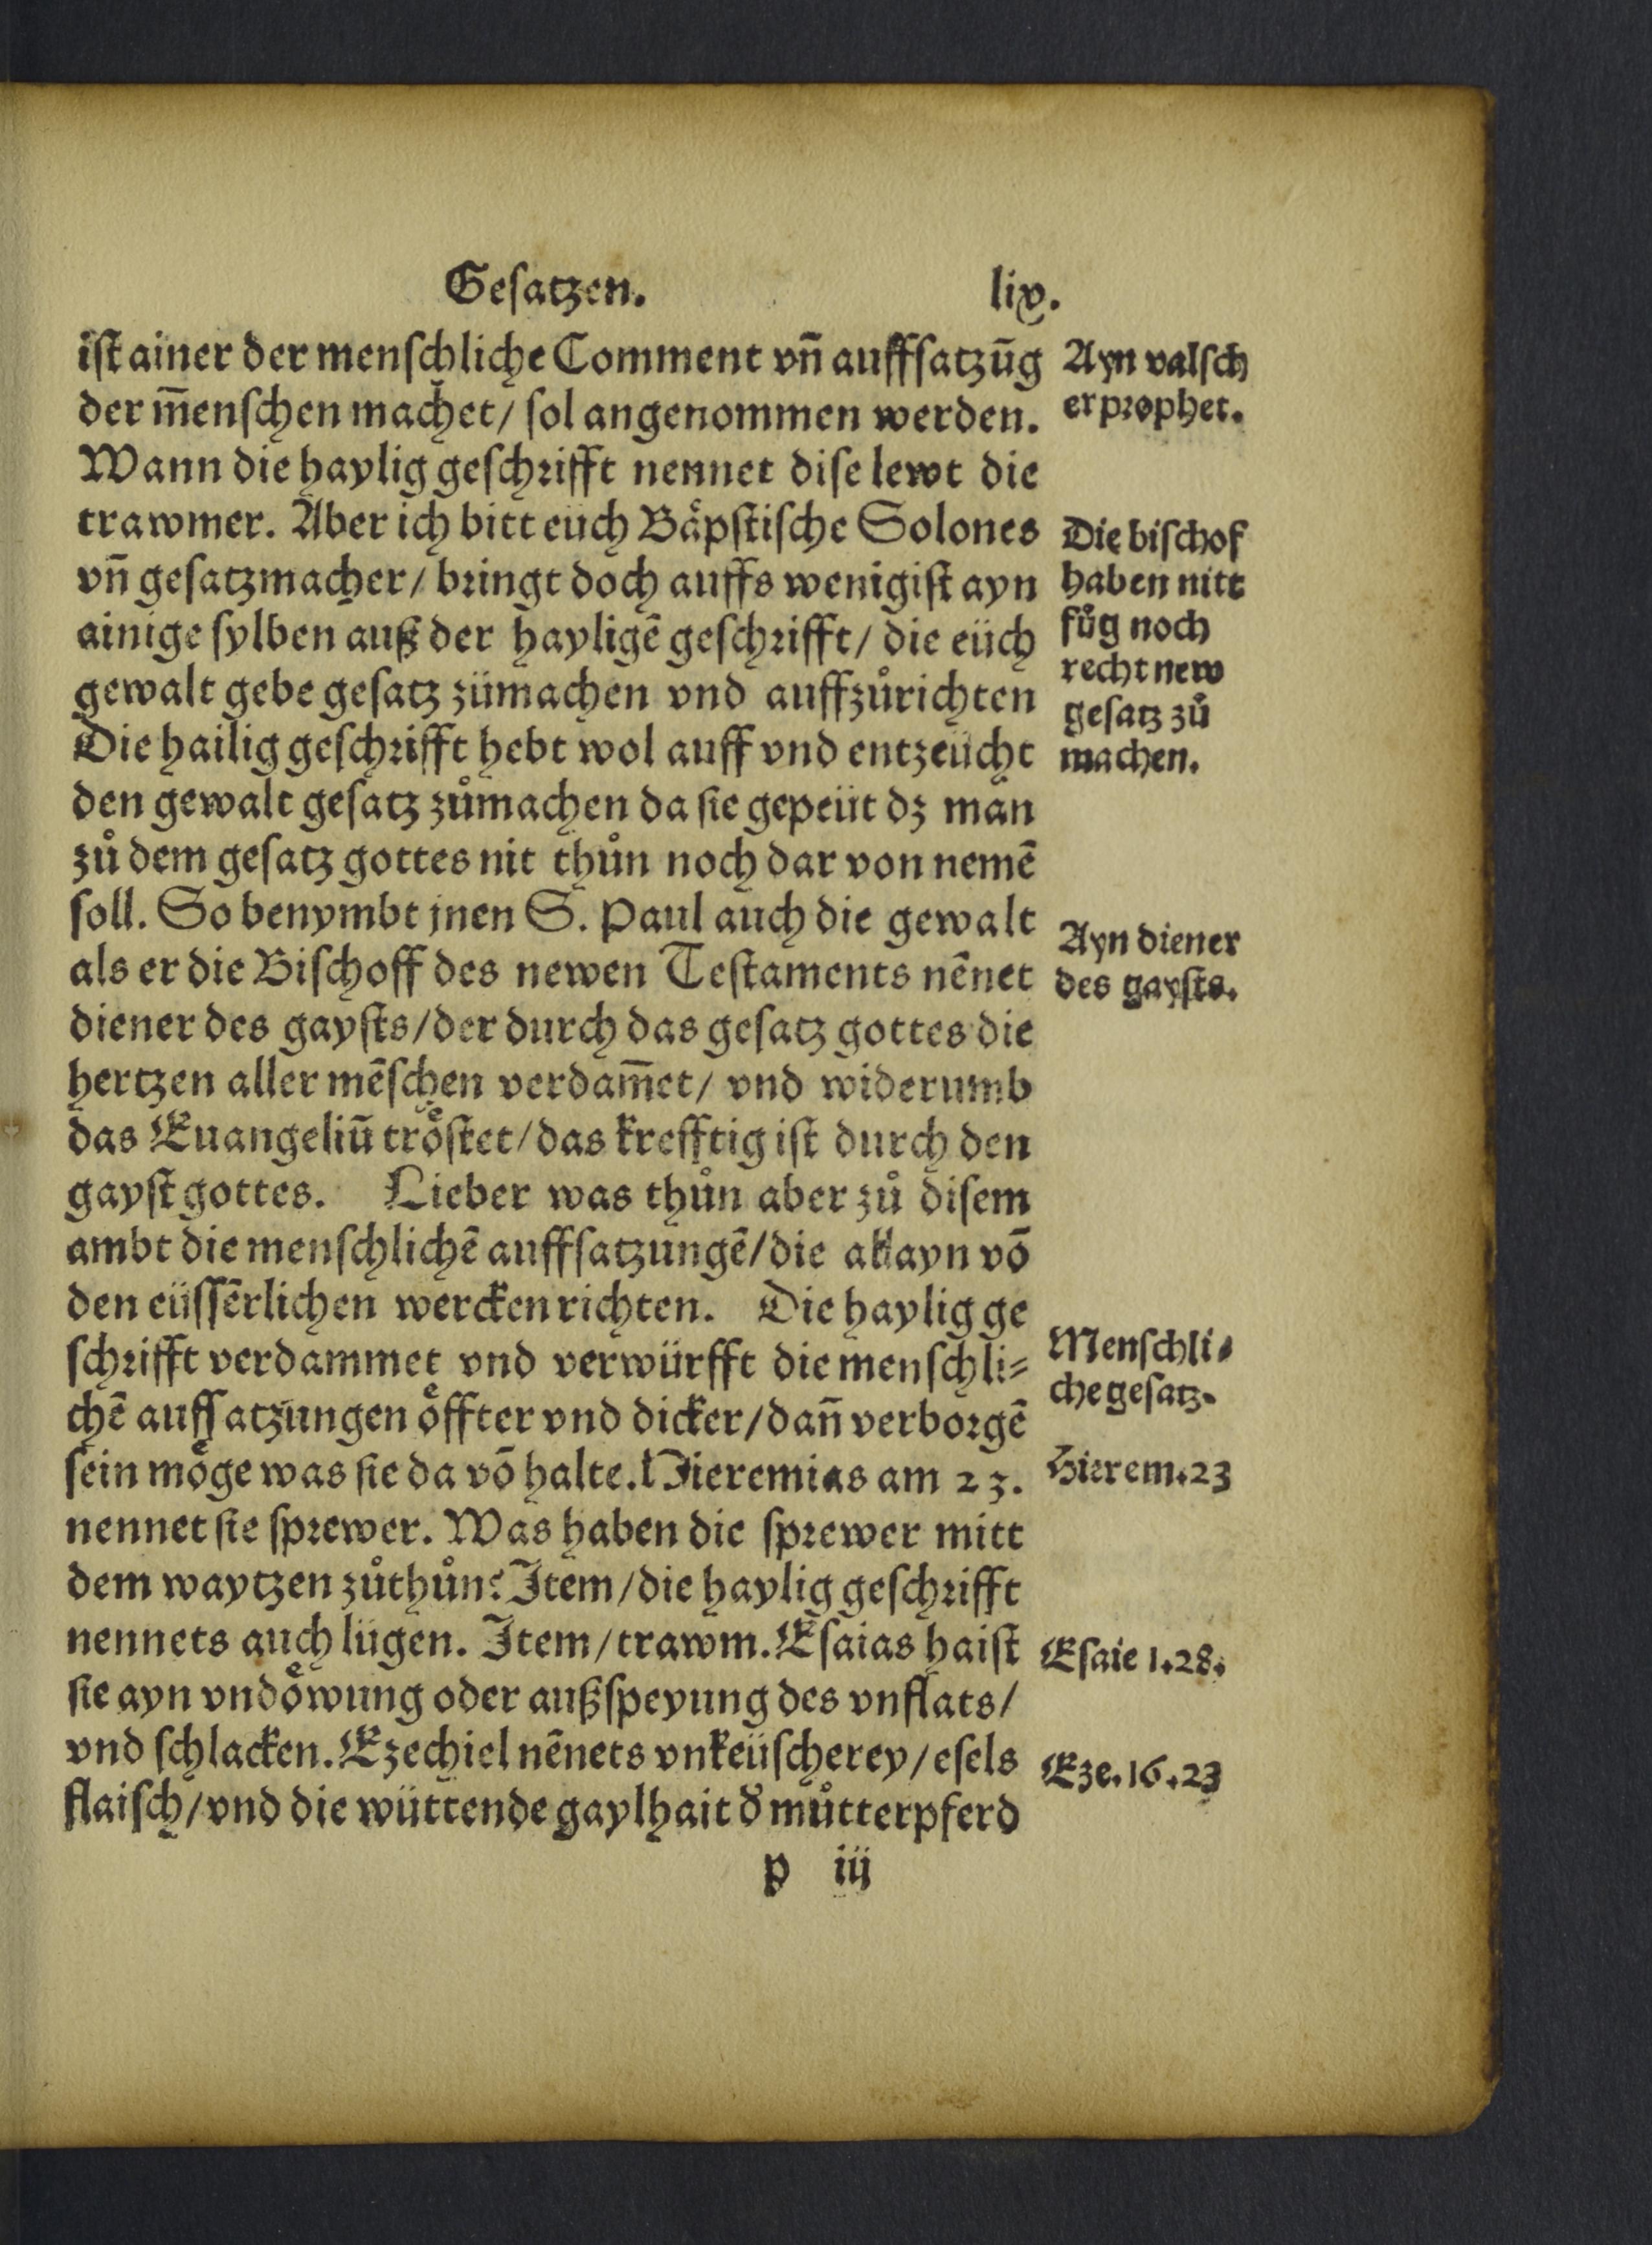 Gesatzen. lix.
iſt ainer der menſchliche Comment vn̄ auffſatzūg
der m̄enſchen machet/ ſol angenommen werden.
Wann die haylig geſchrifft nennet diſe lewt die
trawmer. Aber ich bitt eüch Bäpſtiſche Solones
vn̄ geſatzmacher/ bringt doch auffs wenigiſt ayn
ainige ſylben auß der hayligē geſchrifft/ die eüch
gewalt gebe geſatz zümachen vnd auffzůrichten
Die hailig geſchrifft hebt wol auff vnd entzeücht
den gewalt geſatz zůmachen da ſie gepeüt dz man
zů dem geſatz gottes nit thůn noch dar von nemē
ſoll. So benymbt jnen S. Paul auch die gewalt
als er die Biſchoff des newen Teſtaments nēnet
diener des gayſts/ der durch das geſatz gottes die
hertzen aller mēſchen verdam̄et/ vnd widerumb
das Euangeliū troͤſtet/ das krefftig iſt durch den
gayſt gottes. Lieber was thůn aber zů diſem
ambt die menſchlichē auffſatzungē/ die allayn vō
den eüſſērlichen wercken richten. Die haylig ge
ſchrifft verdammet vnd verwürfft die menſchli⸗
chē aufſſatzungen oͤffter vnd dicker/ dan̄ verborgē
ſein moͤge was ſie da vō halte. Hieremias am 23.
nennet ſie ſprewer. Was haben die ſprewer mitt
dem waytzen zůthůn? Item/ die haylig geſchrifft
nennets auch lügen. Item/ trawm. Eſaias haiſt
ſie ayn vndoͤwung oder außſpeyung des vnflats/
vnd ſchlacken. Ezechiel nēnets vnkeüſcherey/ eſels
flaiſch/ vnd die wüttende gaylhait d̄ můtterpferd
p iij
Ayn valſch
er prophet.
Die biſchof
haben nitt
fůg noch
recht new
geſatz zů
machen.
Ayn diener
des gayſts.
Menſchli⸗
che geſatz.
Hierem.23
Eſaie 1.28.
Eze.16.23